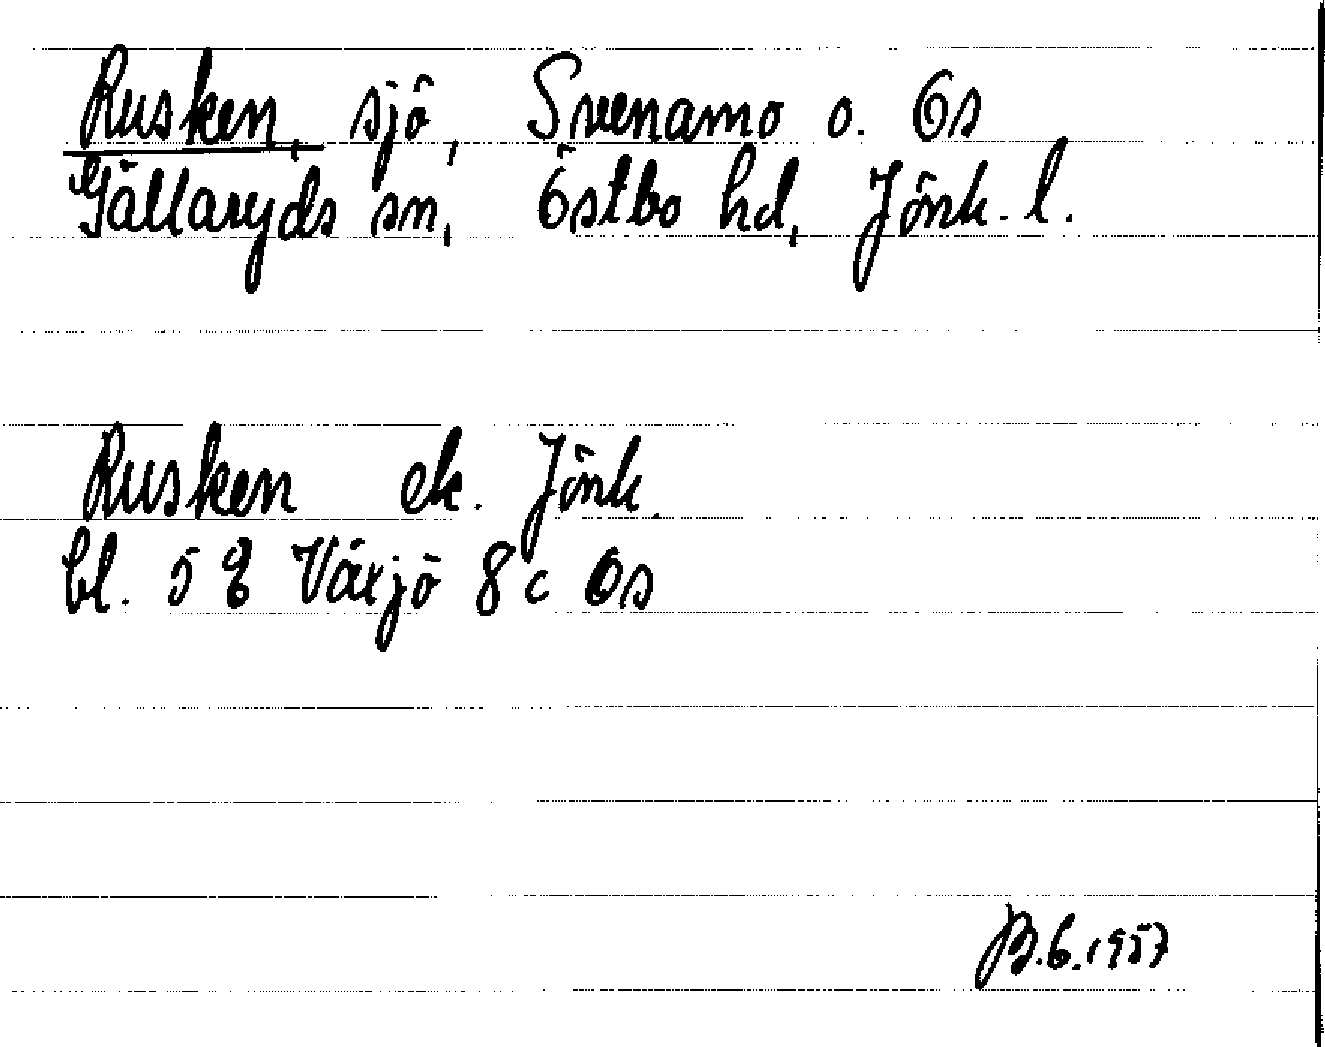 Rusken, sjö, Svenamo o. Ös
Gällaryds sn, Östbo hd, Jönk. l.
Rusken ek. Jönk.
bl. 5 E Växjö 8 c Ös
B.G. 1957